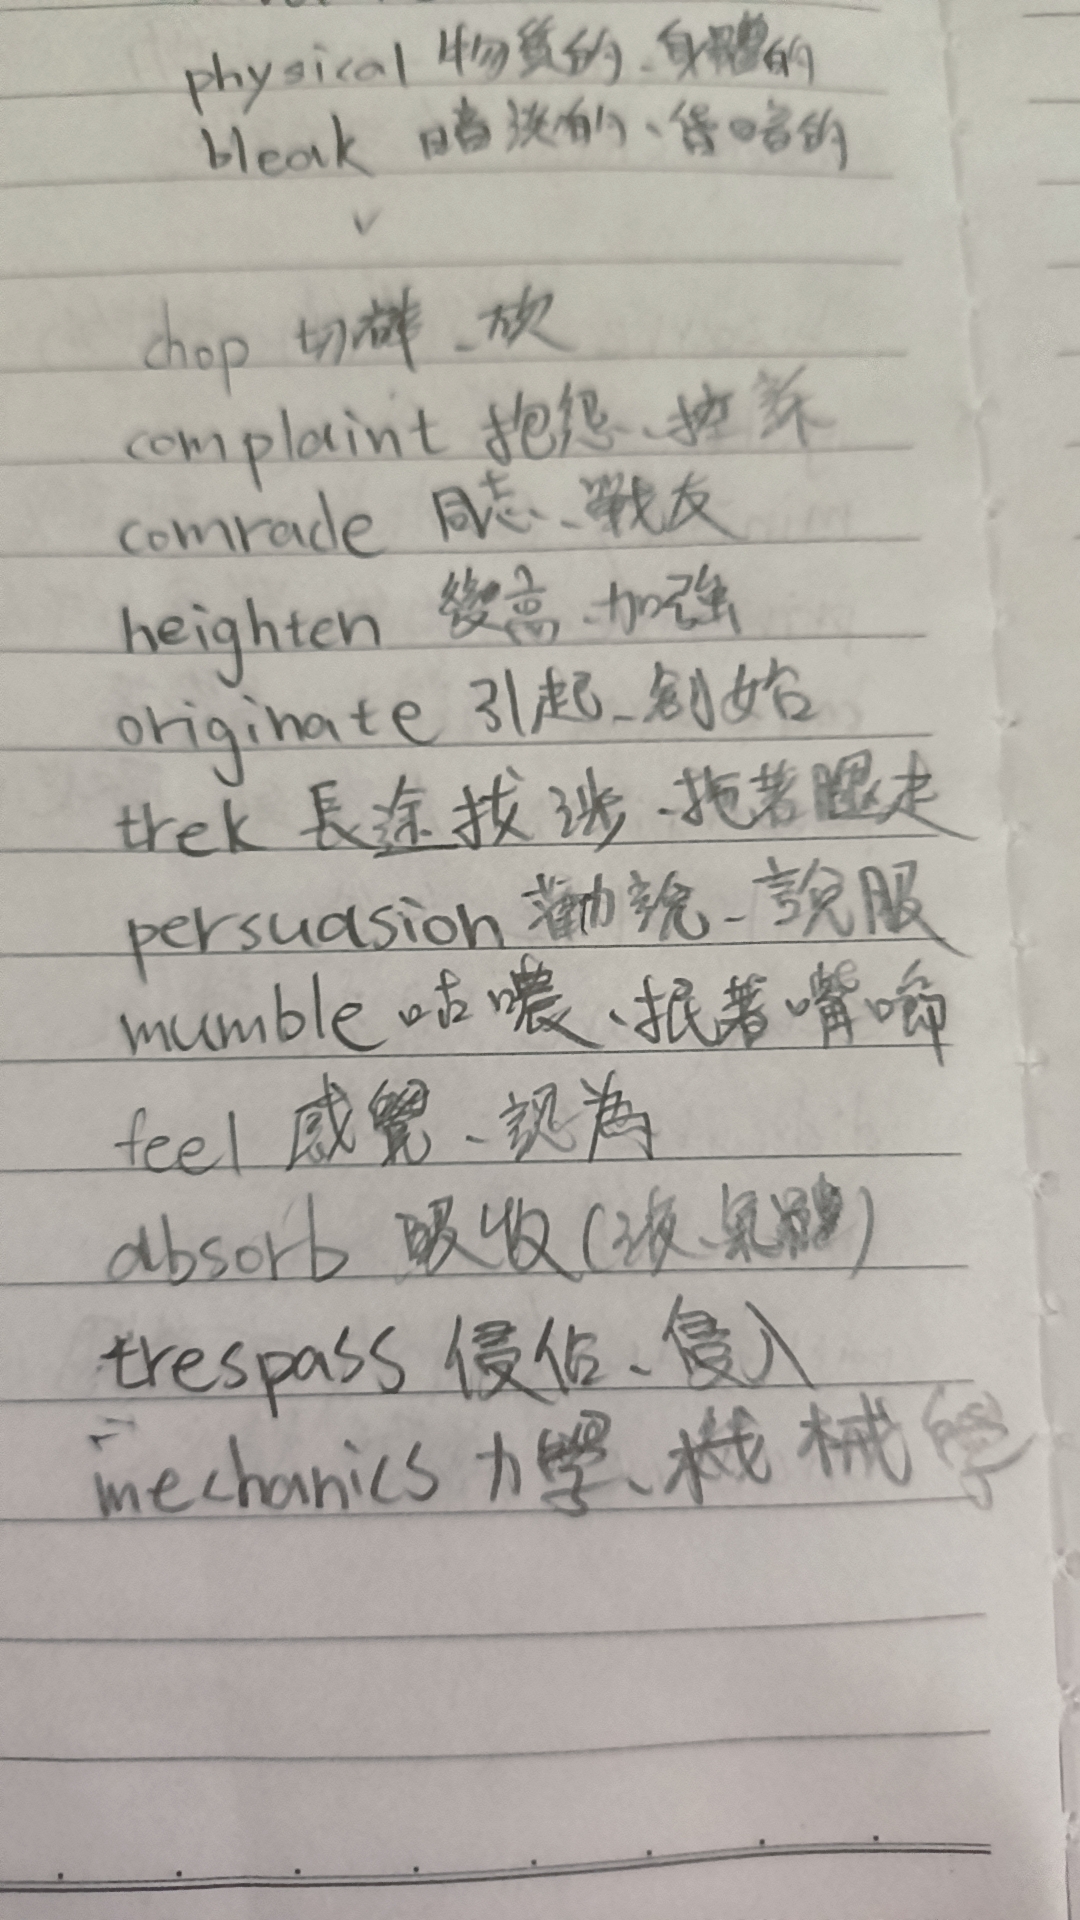 physical 物質的、身體的
bleak 暗淡的、昏暗的
chop 切碎、砍
complaint 抱怨、控訴
comrade 同志、戰友
heighten 變高、加強
originate 引起、創始
trek 長途拔涉、拖著腿走
persuasion 勸說、說服
mumble 咕噥、抿著嘴嚼
feel 感覺、認為
absorb 吸收(液、氣體)
trespass 侵佔、侵入
mechanics 力學、機械學